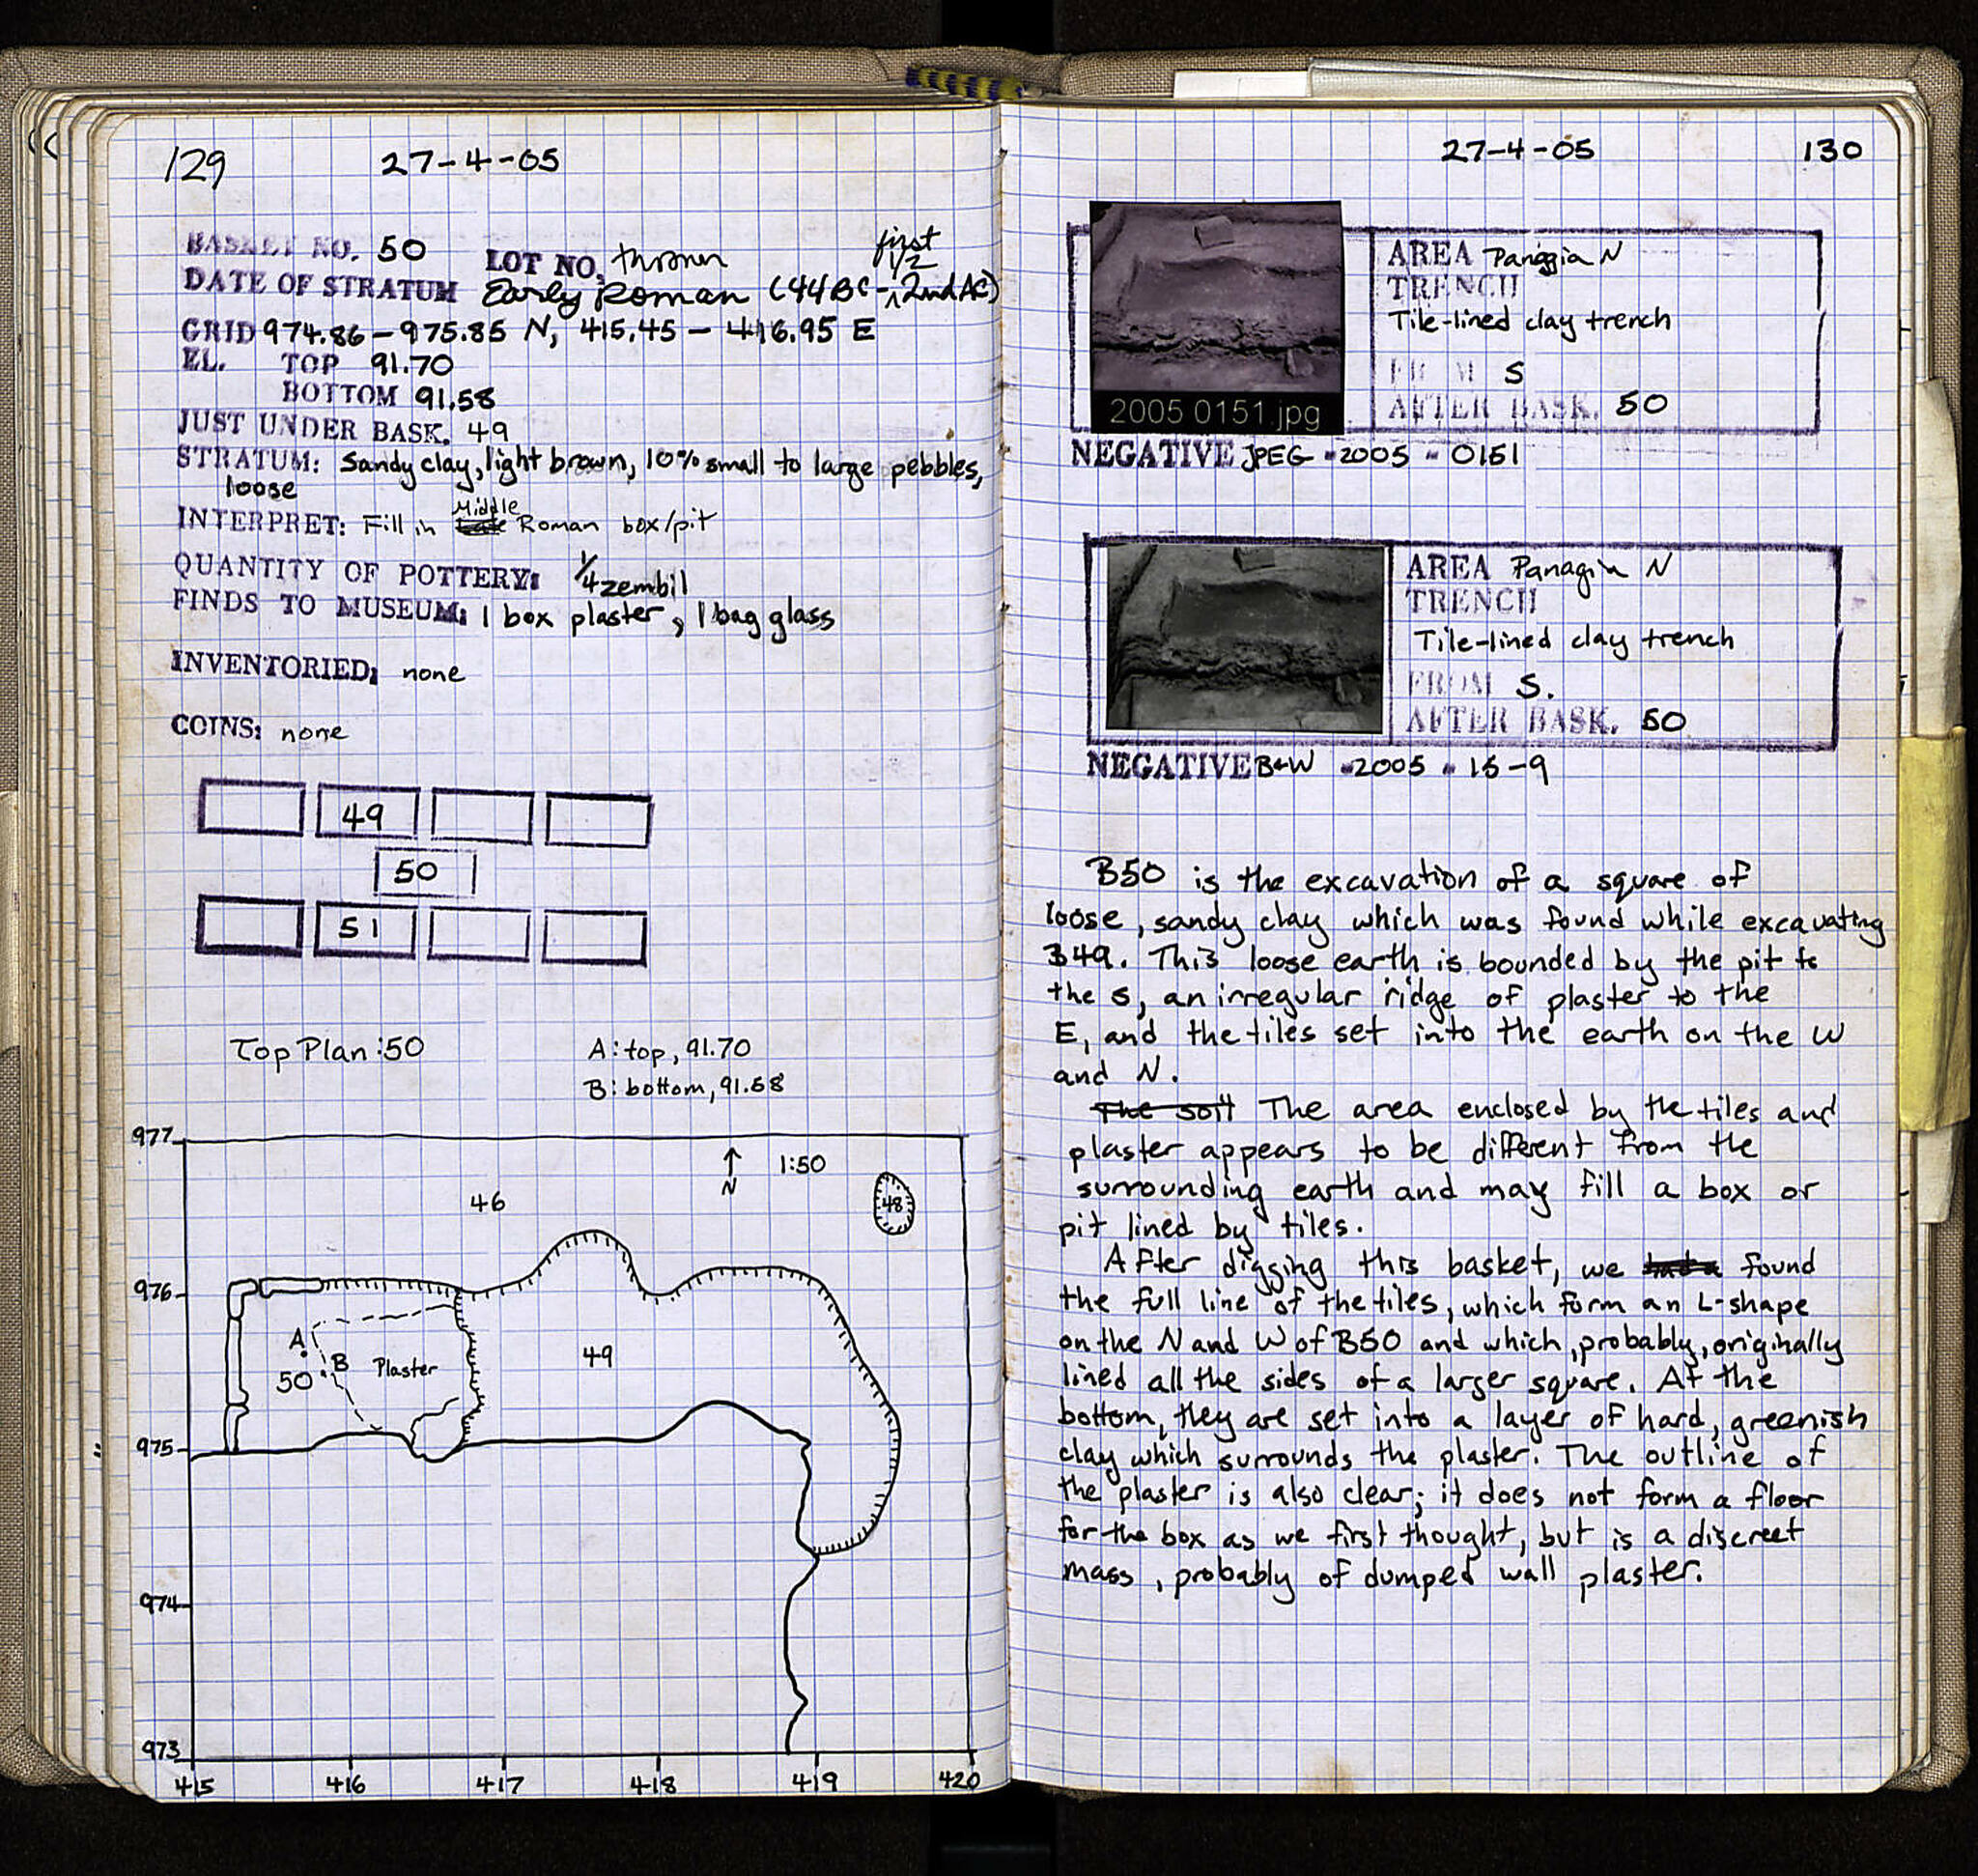 129 27-4-05
BASKET NO. 50 LOT NO. thrown
first
1/2
DATE OF STRATUM Early Roman (44BC-^2nd AC)
GRID 974.86 - 975.85 N, 415.45 - 416.95 E
EL. TOP 91.70
BOTTOM 91.58
JUST UNDER BASK. 49
STRATUM: Sandy clay, light brown, 10% small to large pebbles,
loose
Middle
INTERPRET: Fill in Roman box/pit
QUANTITY OF POTTERY: 1/4 zembil
FINDS TO MUSEUM: 1 box plaster, 1 bag glass
INVENTORIED: none
COINS: none
49
50
51
Top Plan: 50 A: top, 91.70
B: bottom, 91.58
977
N 1:50
46
48
976
A
B Plaster
50
49
975
974
973
415 416 417 418 419 420
27-4-05 130
AREA Panagia N
TRENCH
Tile-lined clay trench
FROM S
AFTER BASK. 50
2005 0151.jpg
NEGATIVE JPEG - 2005 - 0151
AREA Panagia N
TRENCH
Tile-lined clay trench
FROM S.
AFTER BASK. 50
NEGATIVE B+W - 2005 - 15-9
B50 is the excavation of a square of
loose, sandy clay which was found while excavating
B49. This loose earth is bounded by the pit to
the S, an irregular ridge of plaster to the
E, and the tiles set into the earth on the W
and N.
The soil The area enclosed by the tiles and
plaster appears to be different from the
surrounding earth and may fill a box or
pit lined by tiles.
After digging this basket, we found
the full line of the tiles, which form an L-shape
on the N and W of B50 and which, probably, originally
lined all the sides of a larger square. At the
bottom, they are set into a layer of hard, greenish
clay which surrounds the plaster. The outline of
the plaster is also clear; it does not form a floor
for the box as we first thought, but is a discreet
mass, probably of dumped wall plaster.